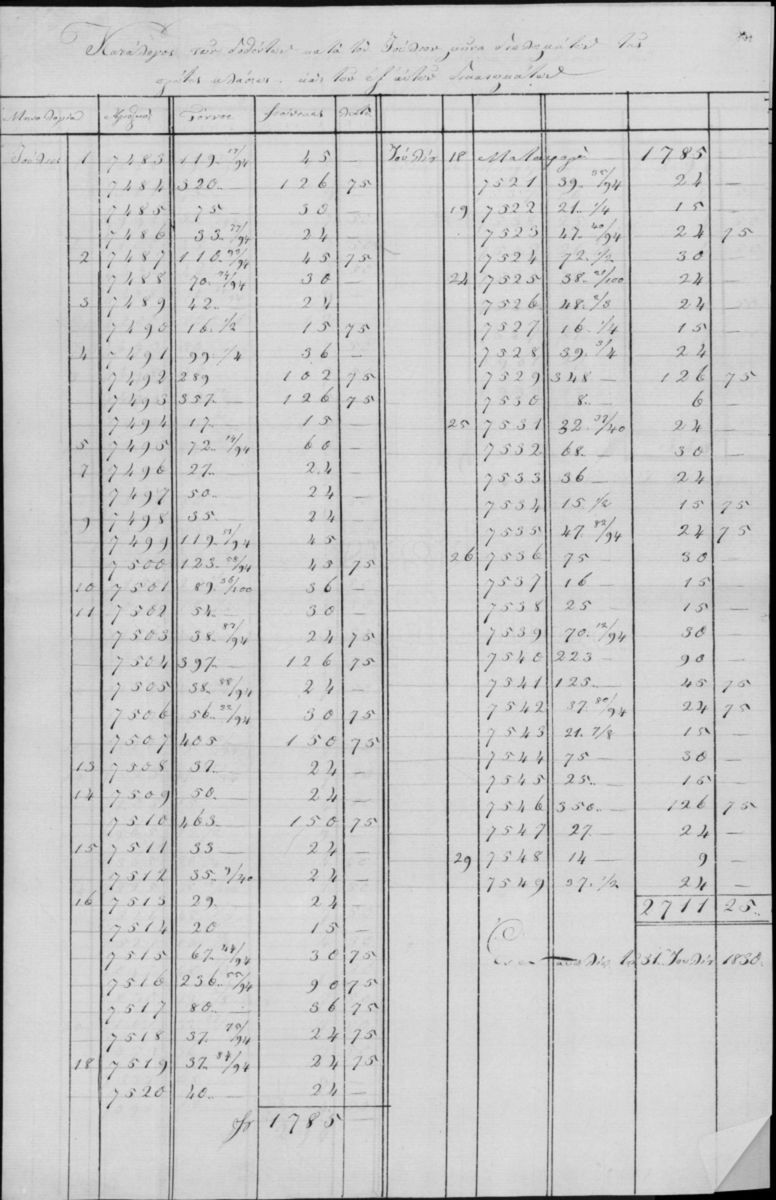 Κατάλογος των δοθέντων κατά τον Ιούλιον μήνα διπλωμάτων της
πρώτης κλάσεως και των εξ αυτών δικαιωμάτων
Μηνολογία Αριθμός Τόννοι φοίνικες λεπτά
Ιούλιος 1 7483 119. /94 45 —
7484 320. — 126 75
7485 75 — 30 —
7486 33. /94 24 —
2 7487 110. /94 45 75
7488 70. 74/94 30 —
3 7489 42. — 24 —
7490 16. 1/2 15 75
4 7491 99. 1/4 36 —
7492 289 102 75
7493 357. — 126 75
7494 17. — 15 —
5 7495 72. 14/94 60 —
7 7496 27. — 24 —
7497 50. — 24 —
9 7498 35. — 24 —
7499 119. /94 45 —
7500 123. /94 45 75
10 7501 89. 36/100 36 —
11 7502 54. — 30 —
7503 38. 82/94 24 75
7504 397. — 126 75
7505 38. 88/94 24 —
7506 56. 22/94 30 75
7507 405 — 150 75
13 7508 37. — 24 —
14 7509 50. — 24 —
7510 463. — 150 75
15 7511 33 — 24 —
7512 35. /40 24 —
16 7513 29. — 24 —
7514 20 15 —
7515 67. 44/94 30 75
7516 236. 55/94 90 75
7517 80. — 36 75
7518 37. 70/94 24 75
18 7519 37. 84/94 24 75
7520 40. — 24 —
φρ 1785
Ιουλίου 18 Μεταφορά 1785 —
7521 39. /94 24 —
19 7522 21. 1/4 15 —
7523 47. 40/94 24 75
7524 72. 1/2 30 —
24 7525 38. /100 24 —
7526 48. 2/3 24 —
7527 16. 1/4 15 —
7528 39. 3/4 24 —
7529 348 — 126 75
7530 8. — 6 —
25 7531 32. /40 24 —
7532 68. — 30 —
7533 36 — 24 —
7534 15. 1/2 15 75
7535 47. 82/94 24 75
26 7536 75 — 30 —
7537 16 — 15 —
7538 25 — 15 —
7539 70. 12/94 30 —
7540 223 — 90 —
7541 125. — 45 75
7542 37. 80/94 24 75
7543 21. 7/8 15 —
7544 75 — 30 —
7545 25. — 15 —
7546 350. — 126 75
7547 27 — 24 —
29 7548 14 — 9 —
7549 37. 1/2 24 —
2711 25.
31 Ιουλίου 1830.